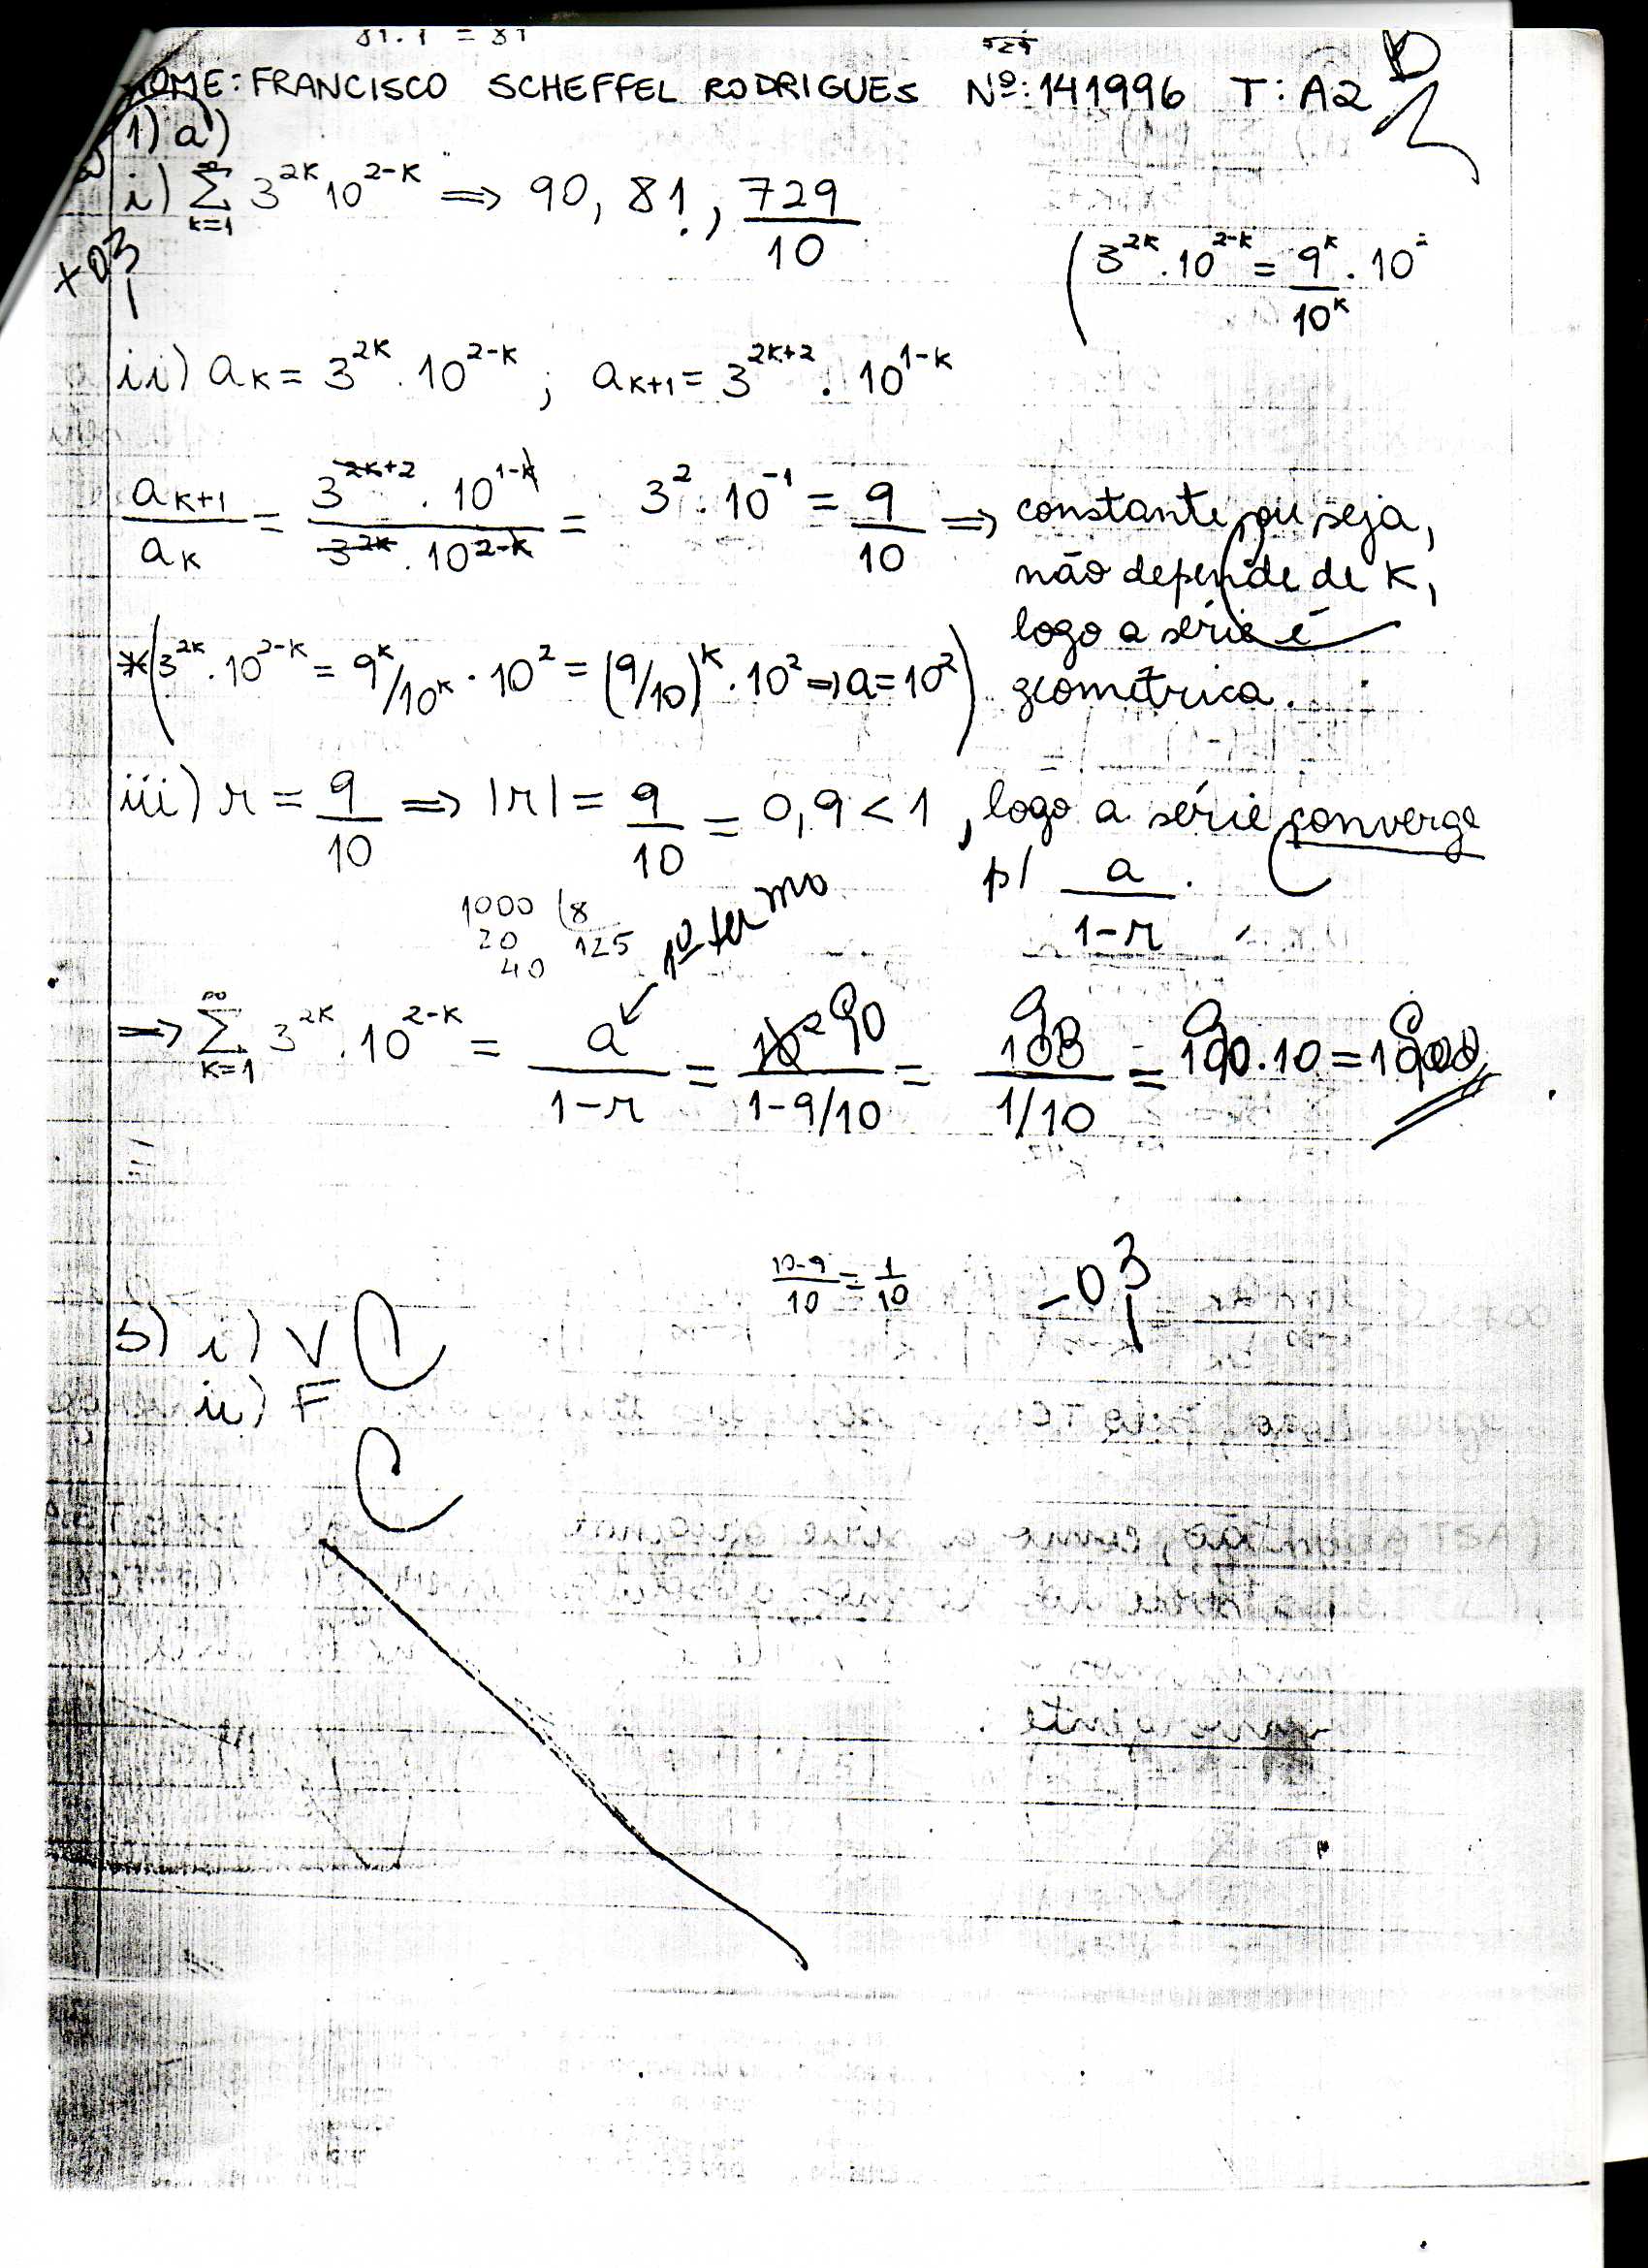 81.1 = 81
729
NOME: FRANCISCO SCHEFFEL RODRIGUES Nº: 141996 T: A2
1) a)
i) ∑_{k=1}^{∞} 3^{2k} 10^{2-k} ⇒ 90, 81, 729/10
+03
(3^{2k} . 10^{2-k} = 9^k/10^k . 10^2
ii) a_k = 3^{2k} . 10^{2-k} ; a_{k+1} = 3^{2k+2} . 10^{1-k}
a_{k+1}/a_k = 3^{2k+2} . 10^{1-k} / 3^{2k} . 10^{2-k} = 3^2 . 10^{-1} = 9/10 ⇒ constante, ou seja,
não depende de k,
logo a série é
geométrica.
*(3^{2k} . 10^{2-k} = 9^k/10^k . 10^2 = (9/10)^k . 10^2 ⇒ a = 10^2)
iii) r = 9/10 ⇒ |r| = 9/10 = 0,9 < 1 , logo a série converge
p/ a/1-r .
1000 (8
20 125
40
1º termo
⇒ ∑_{k=1}^{∞} 3^{2k} . 10^{2-k} = a/1-r = 90/1-9/10 = 90/1/10 = 90.10 = 900
10-9/10 = 1/10
-03
5) i) V C
ii) F
C